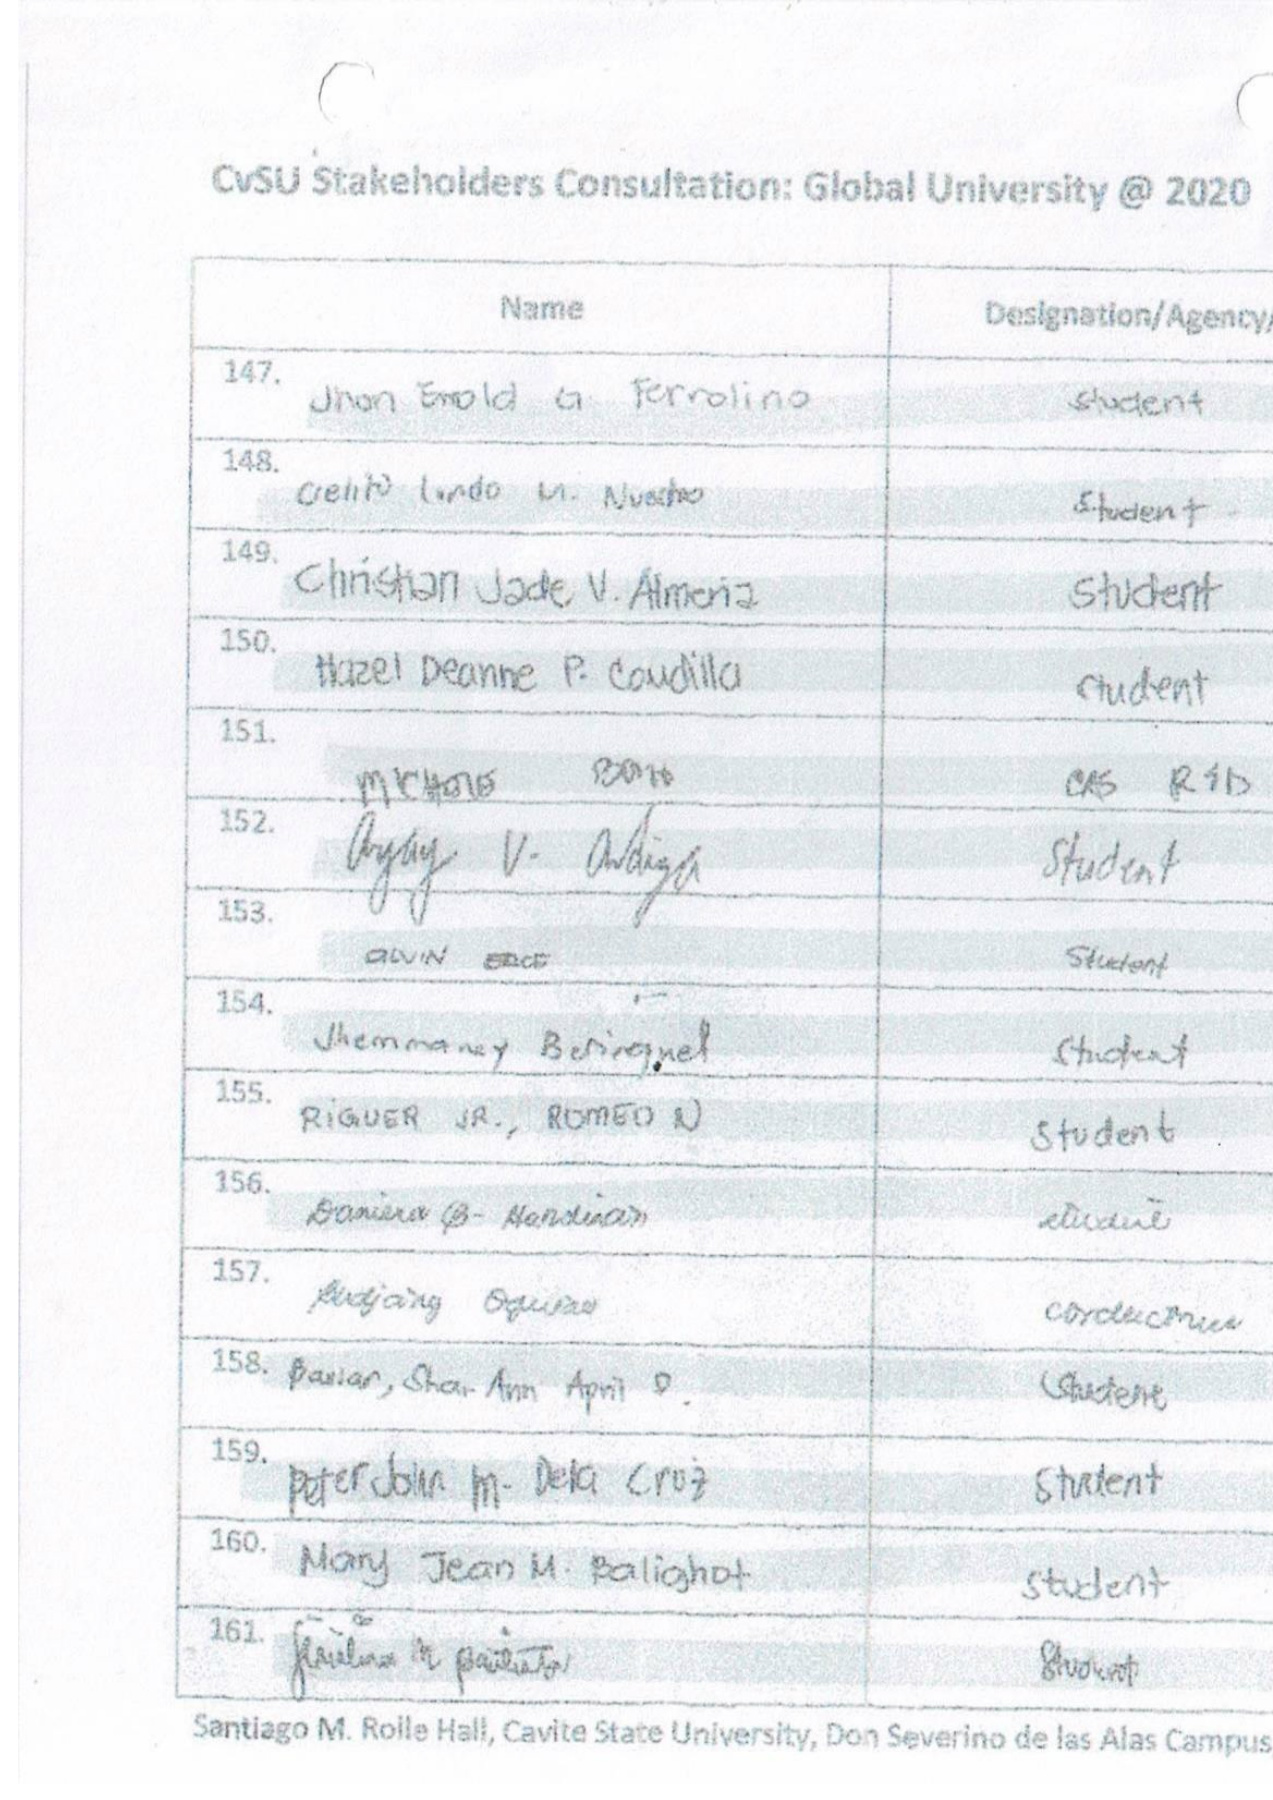 CvSU Stakeholders Consultation: Global University @ 2020
Name Designation/Agency/
147. Jhon Errold G. Ferrolino Student
148. Cielito Lindo Student
149. Christian Jade V. Almeria Student
150. Hazel Deanne P. Caudilla Student
151. CAS R&D
152. V. Student
153. ALVIN ERCE Student
154. Jhemmaney Student
155. RIGUER JR., ROMEO N Student
156. B. student
157.
158. Shar Ann April D. Student
159. Peter John M. Dela Cruz Student
160. Mary Jean M. Balighot Student
161. Student
Santiago M. Rolle Hall, Cavite State University, Don Severino de las Alas Campus